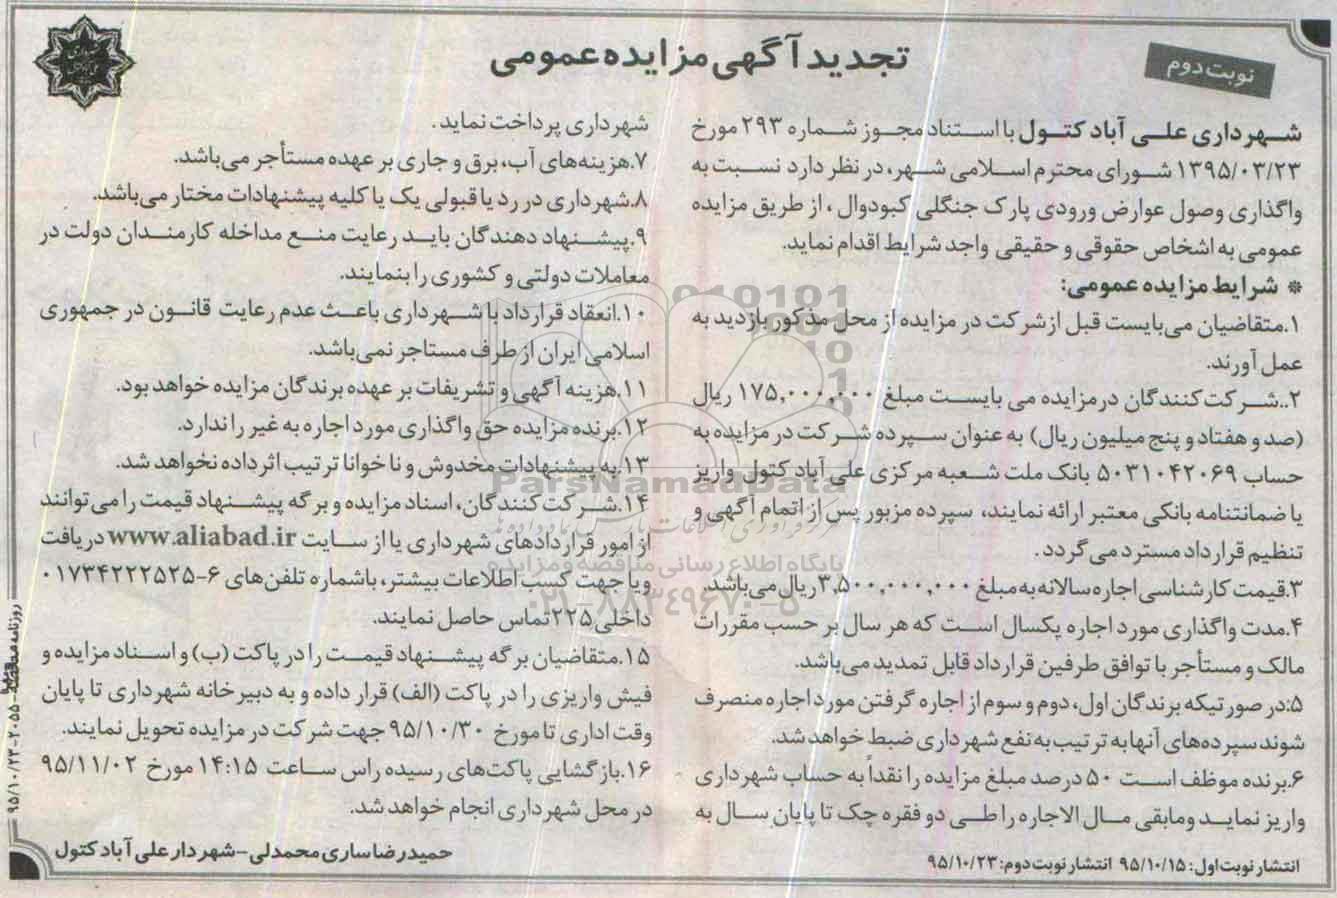 تجدید آگهی مزایده عمومی
نوبت دوم
شهرداری علی آباد کتول با استناد مجوز شماره ۲۹۳ مورخ
۱۳۹۵/۰۳/۲۳ شورای محترم اسلامی شهر، در نظر دارد نسبت به
واگذاری وصول عوارض ورودی پارک جنگلی کبودوال ، از طریق مزایده
عمومی به اشخاص حقوقی و حقیقی واجد شرایط اقدام نماید.
* شرایط مزایده عمومی:
۱.متقاضیان می‌بایست قبل ازشرکت در مزایده از محل مذکور بازدید به
عمل آورند.
۲..شرکت‌کنندگان درمزایده می بایست مبلغ ۱۷۵,۰۰۰,۰۰۰ ریال
(صد و هفتاد و پنج میلیون ریال) به عنوان سپرده شرکت در مزایده به
حساب ۵۰۳۱۰۴۲۰۶۹ بانک ملت شعبه مرکزی علی آباد کتول واریز
یا ضمانتنامه بانکی معتبر ارائه نمایند، سپرده مزبور پس از اتمام آگهی و
تنظیم قرارداد مسترد می گردد .
۳.قیمت کارشناسی اجاره سالانه به مبلغ ۳,۵۰۰,۰۰۰,۰۰۰ ریال می‌باشد.
۴.مدت واگذاری مورد اجاره یکسال است که هر سال بر حسب مقررات
مالک و مستأجر با توافق طرفین قرارداد قابل تمدید می‌باشد.
۵:در صورتیکه برندگان اول، دوم و سوم از اجاره گرفتن مورد اجاره منصرف
شوند سپرده‌های آنها به ترتیب به نفع شهرداری ضبط خواهد شد.
۶.برنده موظف است ۵۰ درصد مبلغ مزایده را نقداً به حساب شهرداری
واریز نماید ومابقی مال الاجاره را طی دو فقره چک تا پایان سال به
شهرداری پرداخت نماید .
۷.هزینه‌های آب، برق و جاری بر عهده مستأجر می‌باشد.
۸.شهرداری در رد یا قبولی یک یا کلیه پیشنهادات مختار می‌باشد.
۹.پیشنهاد دهندگان باید رعایت منع مداخله کارمندان دولت در
معاملات دولتی و کشوری را بنمایند.
۱۰.انعقاد قرارداد با شهرداری باعث عدم رعایت قانون در جمهوری
اسلامی ایران از طرف مستاجر نمی‌باشد.
۱۱.هزینه آگهی و تشریفات بر عهده برندگان مزایده خواهد بود.
۱۲.برنده مزایده حق واگذاری مورد اجاره به غیر را ندارد.
۱۳.به پیشنهادات مخدوش و ناخوانا ترتیب اثر داده نخواهد شد.
۱۴.شرکت‌کنندگان، اسناد مزایده و برگه پیشنهاد قیمت را می‌توانند
از امور قراردادهای شهرداری یا از سایت www.aliabad.ir دریافت
ویا جهت کسب اطلاعات بیشتر، باشماره تلفن‌های ۶-۰۱۷۳۴۲۲۲۵۲۵
داخلی ۲۲۵ تماس حاصل نمایند.
۱۵.متقاضیان برگه پیشنهاد قیمت را در پاکت (ب) و اسناد مزایده و
فیش واریزی را در پاکت (الف) قرار داده و به دبیرخانه شهرداری تا پایان
وقت اداری تا مورخ ۹۵/۱۰/۳۰ جهت شرکت در مزایده تحویل نمایند.
۱۶.بازگشایی پاکت‌های رسیده راس ساعت ۱۴:۱۵ مورخ ۹۵/۱۱/۰۲
در محل شهرداری انجام خواهد شد.
انتشار نوبت اول: ۹۵/۱۰/۱۵ انتشار نوبت دوم: ۹۵/۱۰/۲۳
حمیدرضا ساری محمدلی-شهردار علی آباد کتول
ParsNamadData
پایگاه اطلاع رسانی مناقصه و مزایده
۰۲۱-۸۸۳۴۹۶۷۰-۵
روزنامه مناقصه ۲۰۵۵-۹۵/۱۰/۲۳